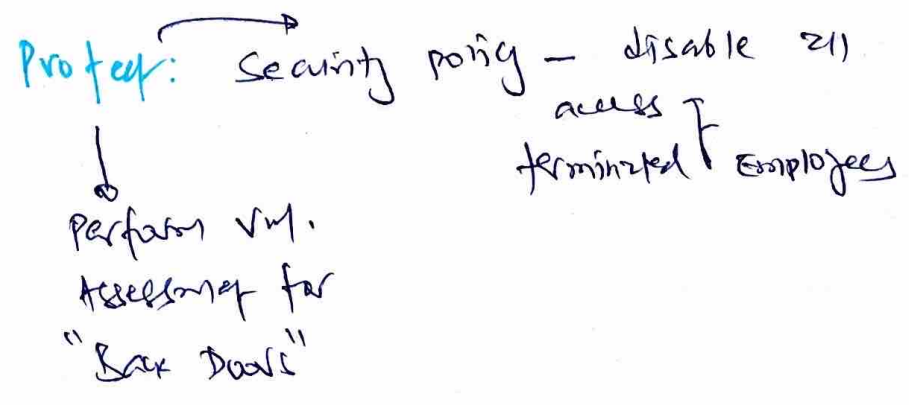 Protect: Security policy - disable all
access
terminated Employees
Perform Vul.
Assessment for
"Back Doors"